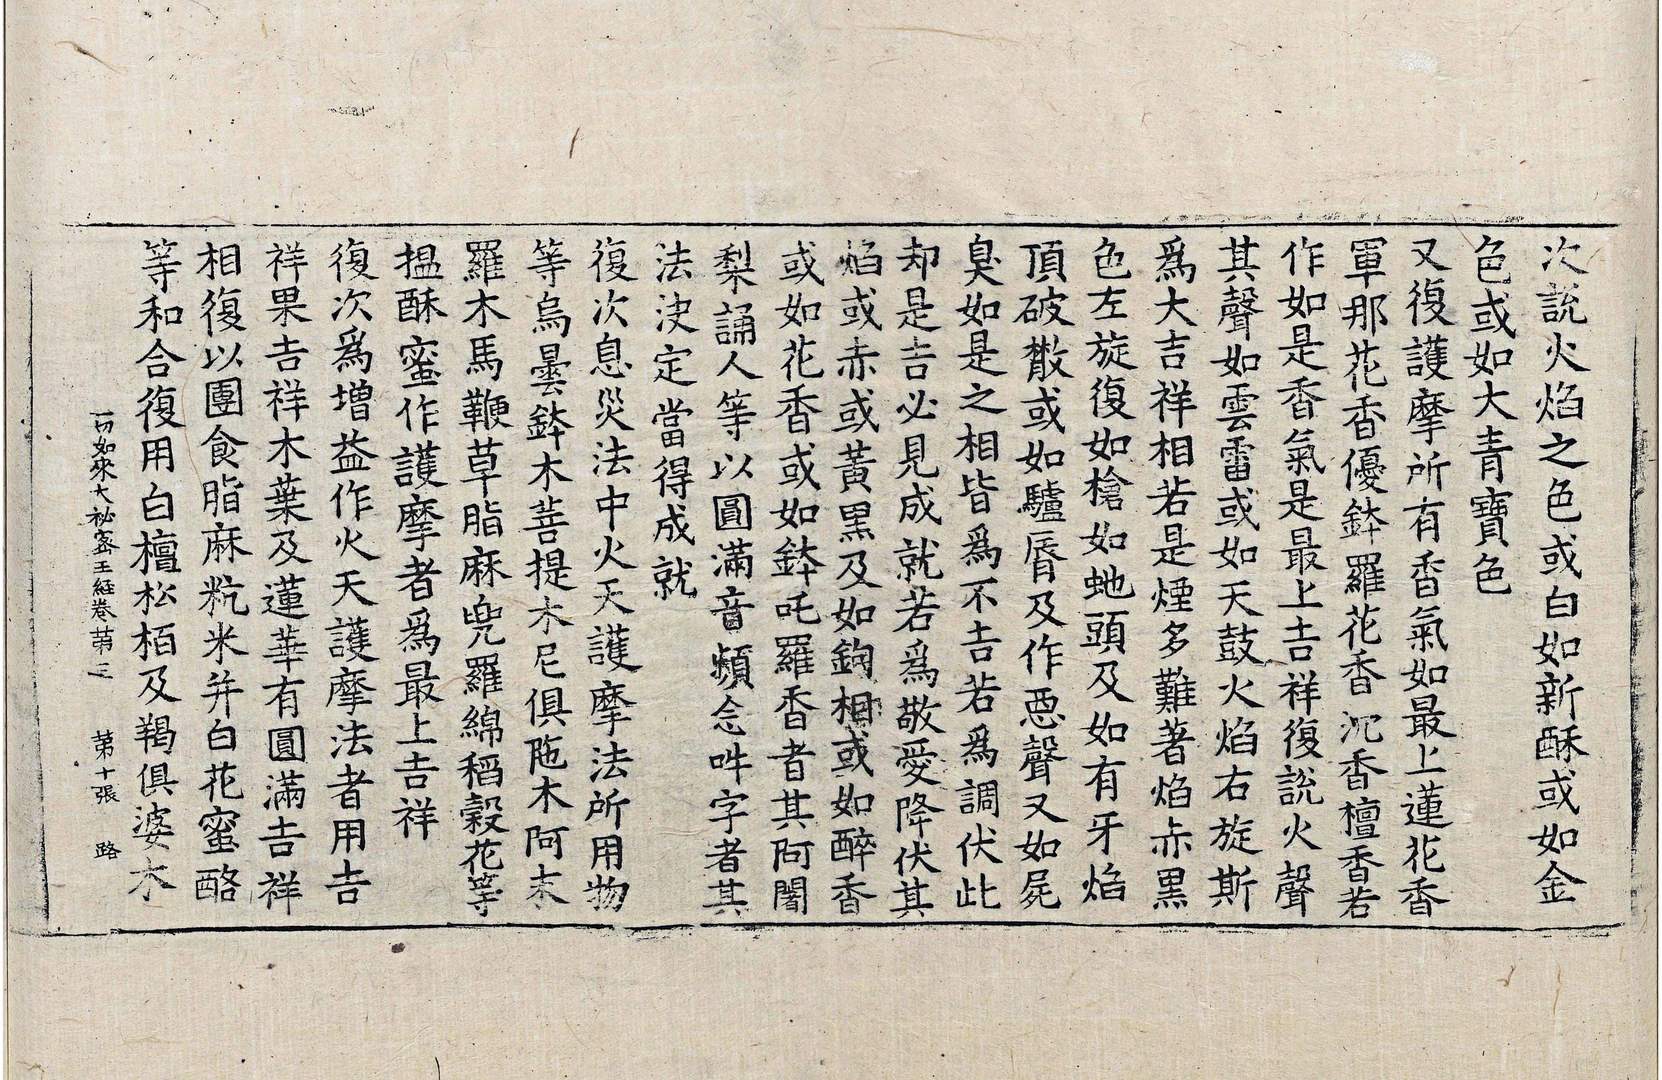 次說火焰之色或白如新酥或如金
色或如大青寶色
又復護摩所有香氣如最上蓮花香
軍那花香優鉢羅花香沉香檀香若
作如是香氣是最上吉祥復說火聲
其聲如雲雷或如天鼓火焰右旋斯
爲大吉祥相若是煙多難著焰赤黑
色左旋復如槍如虵頭及如有牙焰
頂破㪚或如驢脣及作惡聲又如屍
臭如是之相皆爲不吉若爲調伏此
却是吉必見成就若爲敬愛降伏其
焰或赤或黃黑及如鉤相或如醉香
或如花香或如鉢吒羅香者其阿闍
梨誦人等以圓滿音頻念吽字者其
法決定當得成就
復次息災法中火天護摩法所用物
等烏曇鉢木菩提木尼俱陁木阿末
羅木馬鞭草脂麻兜羅綿稻穀花等
揾酥蜜作護摩者爲最上吉祥
復次爲增益作火天護摩法者用吉
祥果吉祥木葉及蓮華有圓滿吉祥
相復以團食脂麻粇米并白花蜜酪
等和合復用白檀松栢及羯俱婆木
一切如來大祕密王經卷第三 第十張 路